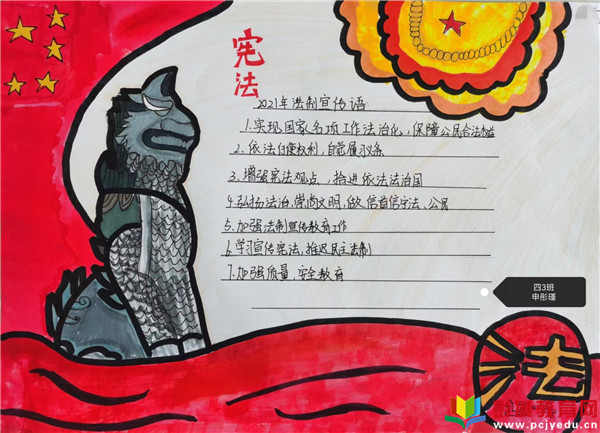 宪法
2021年法制宣传语:
1.实现国家各项工作法治化,保障公民合法权益
2.依法行使权利,自觉履行义务
3.增强宪法观点,推进依法治国
4.弘扬法治,崇尚文明,做信守法、公民
5.加强法制宣传教育工作
6.学习宣传宪法,推进民主法制
7.加强质量,安全教育
四3班
申彤瑾
法
教育网
www.pcjyedu.cn